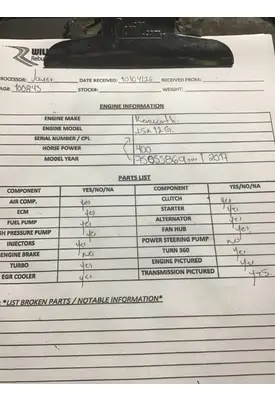 WIL
Rebu
ROCESSOR: Javier DATE RECEIVED: RECEIVED FROM:
TAG#: STOCK#: WEIGHT:
ENGINE INFORMATION
ENGINE MAKE Kenworth
ENGINE MODEL ISX12G
SERIAL NUMBER / CPL
HORSE POWER 400
MODEL YEAR 75055869 2017
PARTS LIST
COMPONENT YES/NO/NA COMPONENT YES/NO/NA
AIR COMP. yes CLUTCH yes
ECM yes STARTER
FUEL PUMP yes ALTERNATOR yes
GH PRESSURE PUMP FAN HUB
INJECTORS yes POWER STEERING PUMP NO
ENGINE BRAKE NO TURN 360 yes
TURBO yes ENGINE PICTURED yes
EGR COOLER yes TRANSMISSION PICTURED yes
*LIST BROKEN PARTS / NOTABLE INFORMATION*